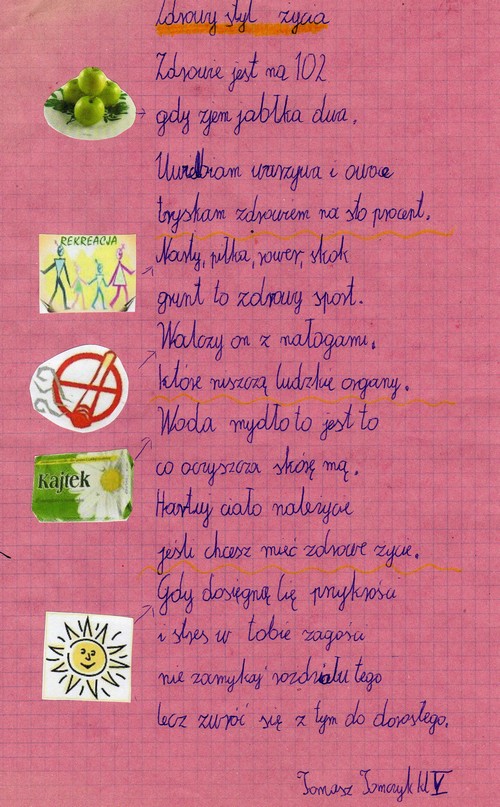 Zdrowy styl życia
Zdrowie jest na 102
gdy zjem jabłka dwa.
Uwielbiam warzywa i owoce
tryskam zdrowiem na sto procent.
REKREACJA
Narty, piłka, rower, skok
grunt to zdrowy sport.
Walczy on z nałogami.
które niszczą ludzkie organy.
Woda mydło to jest to
co oczyszcza skórę mą.
Kajtek
Hartuj ciało należycie
jeśli chcesz mieć zdrowe życie.
Gdy dosięgną Cię przykrości
i stres w tobie zagości
nie zamykaj rozdziału tego
lecz zwróć się z tym do dorosłego.
Tomasz Tomczyk kl V